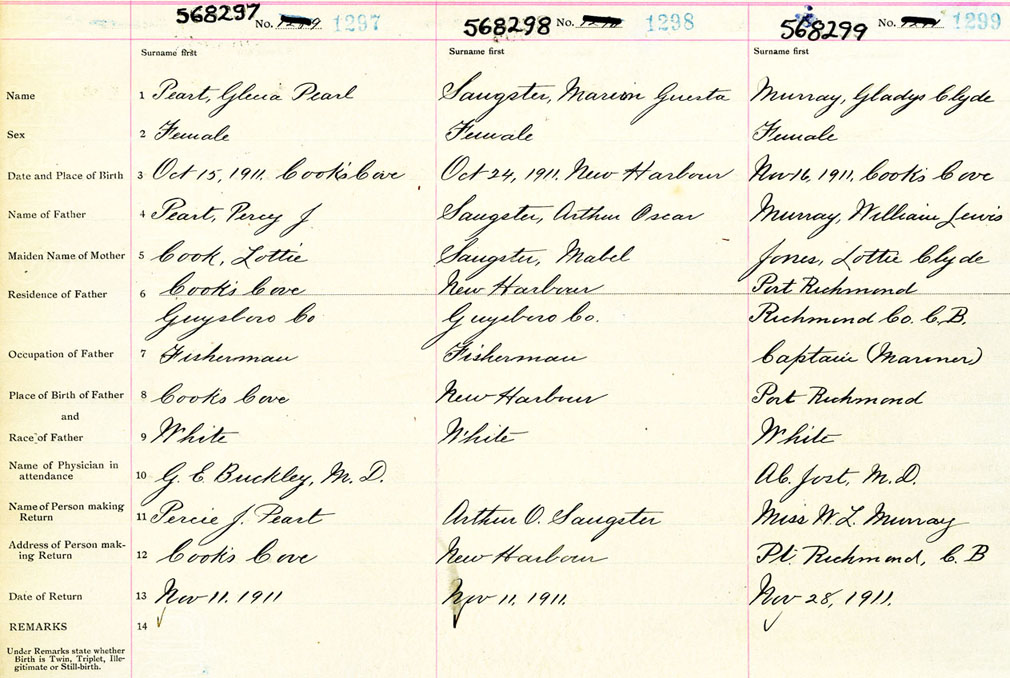 568297 No. 1297 568298 No. 1298 568299 No. 1299
Surname first Surname first Surname first
Name 1 Peart, Glecia Pearl Sangster, Marion Guesta Murray, Gladys Clyde
Sex 2 Female Female Female
Date and Place of Birth 3 Oct 15, 1911. Cook's Cove Oct 24, 1911. New Harbour Nov 16, 1911. Cook's Cove
Name of Father 4 Peart, Percy J Sangster, Arthur Oscar Murray, William Lewis
Maiden Name of Mother 5 Cook, Lottie Sangster, Mabel Jones, Lottie Clyde
Residence of Father 6 Cook's Cove New Harbour Port Richmond
Guysboro Co Guysboro Co. Richmond Co. C.B.
Occupation of Father 7 Fisherman Fisherman Captain (Mariner)
Place of Birth of Father 8 Cook's Cove New Harbour Port Richmond
and
Race of Father 9 White White White
Name of Physician in
attendance 10 G. E. Buckley, M. D. A.C. Jost, M. D.
Name of Person making
Return 11 Percie J. Peart Arthur O. Sangster Miss W. L. Murray
Address of Person mak-
ing Return 12 Cook's Cove New Harbour Pt. Richmond, C. B
Date of Return 13 Nov 11. 1911 Nov 11. 1911. Nov 28, 1911.
REMARKS 14
Under Remarks state whether
Birth is Twin, Triplet, Ille-
gitimate or Still-birth.